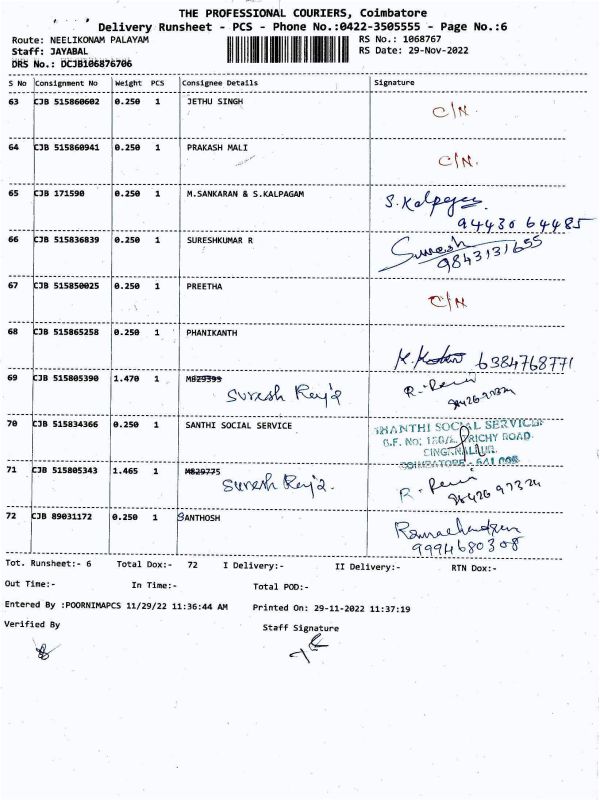 THE PROFESSIONAL COURIERS, Coimbatore
Delivery Runsheet - PCS - Phone No.:0422-3505555 - Page No.:6
Route: NEELIKONAM PALAYAM RS No.: 1068767
Staff: JAYABAL RS Date: 29-Nov-2022
DRS No.: DCJB106876706
S No Consignment No Weight PCS Consignee Details Signature
63 CJB 515860602 0.250 1 JETHU SINGH C/N.
64 CJB 515860941 0.250 1 PRAKASH MALI C/N.
65 CJB 171590 0.250 1 M.SANKARAN & S.KALPAGAM S. Kalpagam
94430 64485
66 CJB 515836839 0.250 1 SURESHKUMAR R Suresh
9843131655
67 CJB 515850025 0.250 1 PREETHA C/N
68 CJB 515865258 0.250 1 PHANIKANTH
6384768771
69 CJB 515805390 1.470 1 MB29395
Suresh
70 CJB 515834366 0.250 1 SANTHI SOCIAL SERVICE SHANTHI SOCIAL SERVICE
TRICHY ROAD
SINGANALLUR,
COIMBATORE - 641 005
71 CJB 515805343 1.465 1 MB29775
Suresh
98426 97324
72 CJB 89031172 0.250 1 SANTHOSH Ramachandran
9994680308
Tot. Runsheet:- 6 Total Dox:- 72 I Delivery:- II Delivery:- RTN Dox:-
Out Time:- In Time:- Total POD:-
Entered By :POORNIMAPCS 11/29/22 11:36:44 AM Printed On: 29-11-2022 11:37:19
Verified By Staff Signature